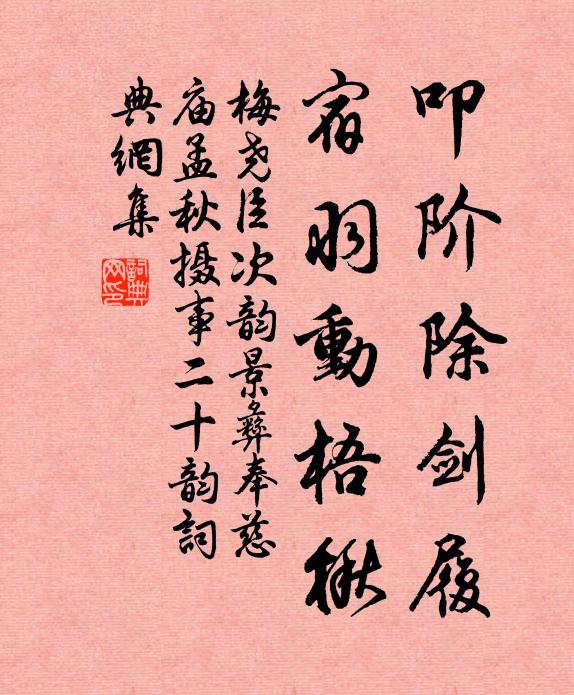 叩阶除剑履
宿羽動梧楸
梅尧臣次韵景彝奉慈
庙孟秋摄事二十韵詞
典網集
詞典
网印